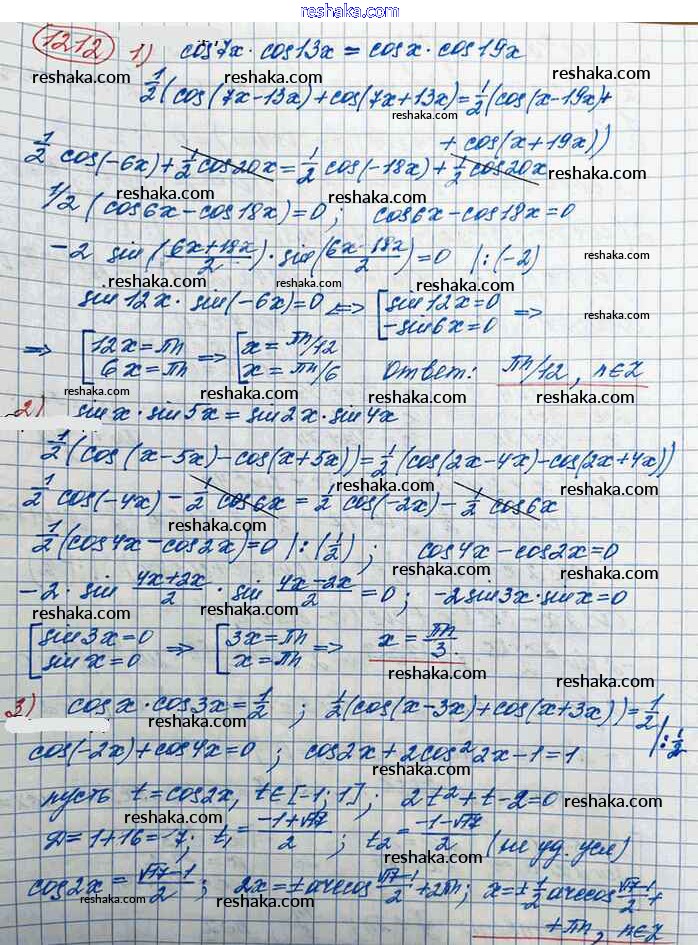 reshaka.com
1212 1) cos7x · cos13x = cosx · cos19x
reshaka.com reshaka.com reshaka.com
1/2(cos(7x-13x)+cos(7x+13x)=1/2(cos(x-19x)+
reshaka.com
+ cos(x+19x))
1/2 cos(-6x)+1/2cos20x=1/2 cos(-18x)+1/2cos20x
reshaka.com reshaka.com
1/2 (cos6x-cos18x)=0; cos6x-cos18x=0
reshaka.com
-2 sin(6x+18x/2)·sin(6x-18x/2)=0 |:(-2)
reshaka.com reshaka.com reshaka.com
sin12x · sin(-6x)=0 <=> [sin12x=0 =>
-sin6x=0
reshaka.com reshaka.com
=> [12x=πn => [x=πn/12
6x=πn x=πn/6 Ответ: πn/12, n∈Z
reshaka.com reshaka.com reshaka.com
2) sinx · sin5x = sin2x · sin4x
reshaka.com reshaka.com
1/2(cos(x-5x)-cos(x+5x))=1/2(cos(2x-4x)-cos(2x+4x))
reshaka.com reshaka.com
1/2 cos(-4x) - 1/2 cos6x = 1/2 cos(-2x) - 1/2 cos6x
reshaka.com
1/2(cos4x-cos2x)=0 |:(1/2); cos4x-cos2x=0
reshaka.com reshaka.com
-2 · sin 4x+2x/2 · sin 4x-2x/2 = 0; -2sin3x·sinx=0
reshaka.com reshaka.com reshaka.com
[sin3x=0 => [3x=πn => x = πn/3.
sinx=0 x=πn
reshaka.com reshaka.com
3) cosx · cos3x = 1/2; 1/2(cos(x-3x)+cos(x+3x))=1/2 |:1/2
reshaka.com reshaka.com
cos(-2x)+cos4x=0; cos2x+2cos²2x-1=1
reshaka.com
пусть t=cos2x, t∈[-1; 1]; 2t²+t-2=0
reshaka.com reshaka.com
Д=1+16=17; t1 = -1+√17/2; t2 = -1-√17/2 (не уд. усл)
reshaka.com
cos2x = √17-1/2; 2x=±arccos √17-1/2 +2πn; x=±1/2 arccos √17-1/2 +
reshaka.com reshaka.com reshaka.com
+ πn, n∈Z
reshaka.com